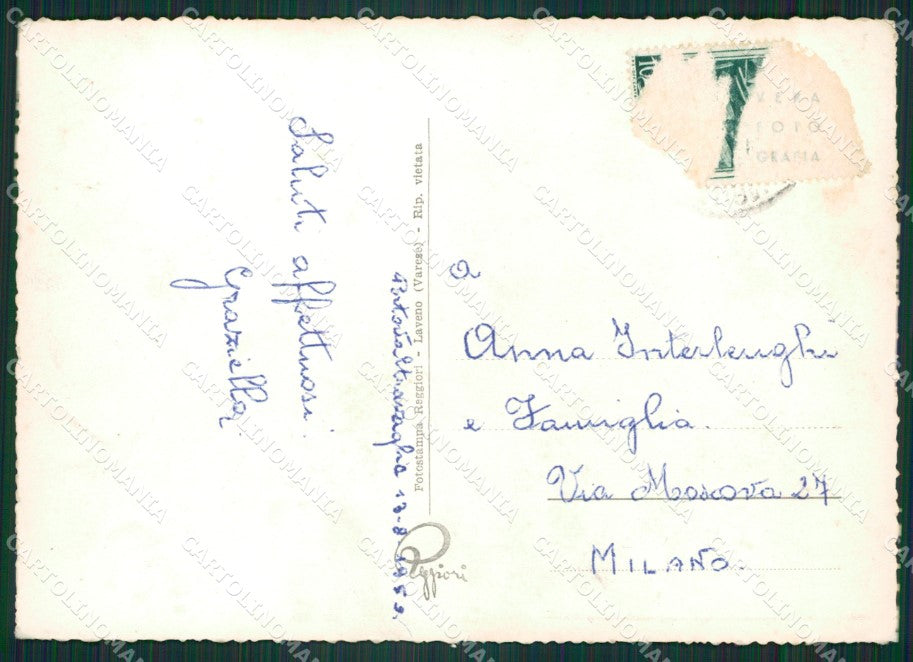 Saluti affettuosi.
Graziella.
Portovaltravaglia 13-8-195
Fotostampa Reggiori - Laveno (Varese) - Rip. vietata
Reggiori
10
VERA
FOTO
GRAFIA
a
Anna Interlenghi
e Famiglia.
Via Moscova 27
MILANO.
CARTOLINOMANIA